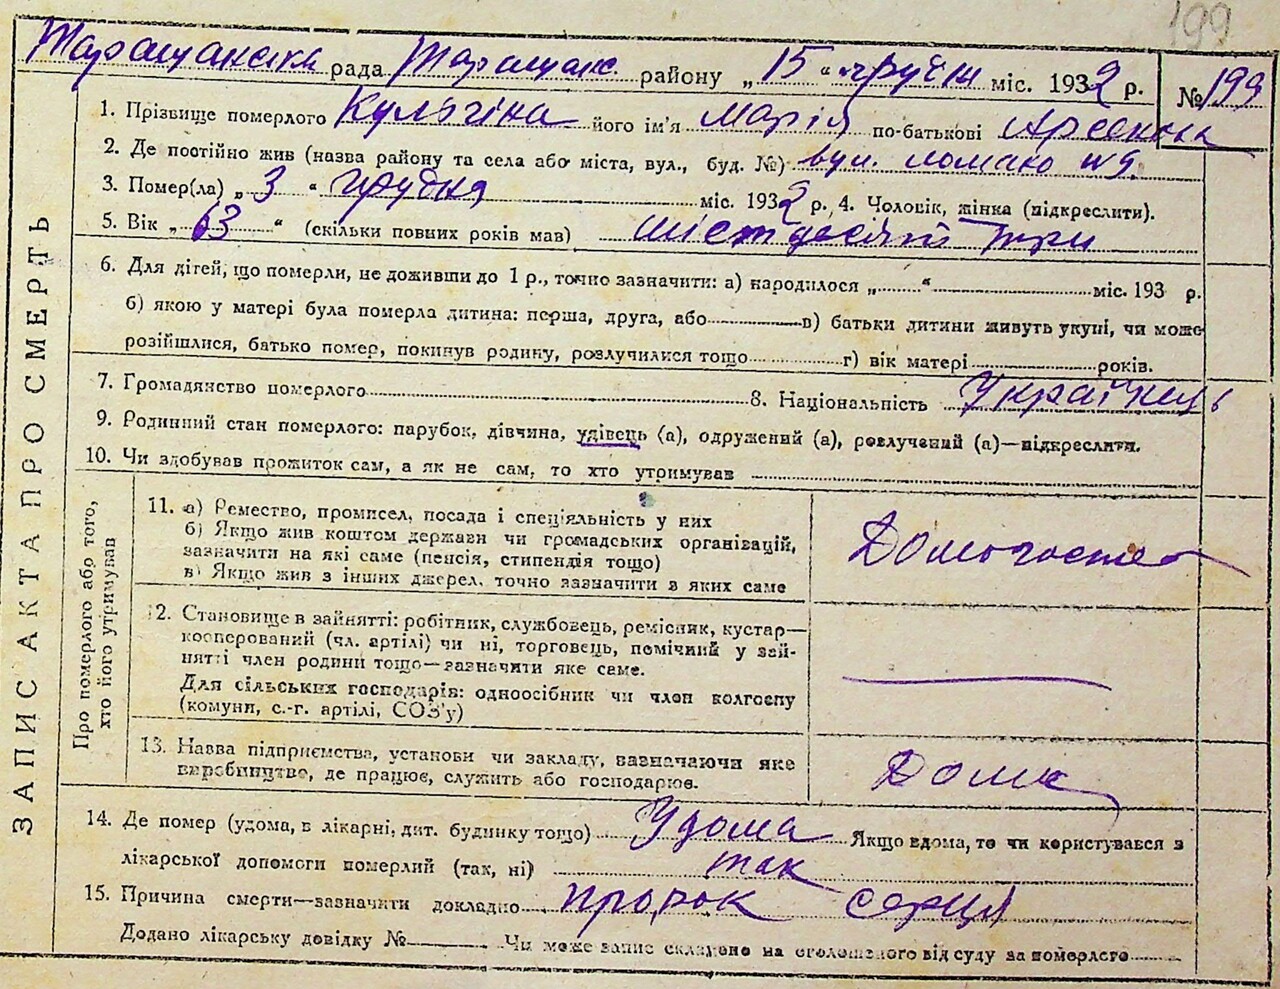 199
Таращанська рада Таращанс. району „15“ грудня міс. 1932 р. № 199
1. Прізвище померлого Кульгіна його ім'я Марія по-батькові Арсеновна
2. Де постійно жив (назва району та села або міста, вул., буд. №) вул. ломако №9.
3. Помер(ла) „3“ грудня міс. 1932 р. 4. Чоловік, жінка (підкреслити).
5. Вік „63“ (скільки повних років мав) шістдесят три
6. Для дітей, що померли, не доживши до 1 р., точно зазначити: а) народилося „ “ міс. 193 р.
б) якою у матері була померла дитина: перша, друга, або в) батьки дитини живуть укупі, чи може
розійшлися, батько помер, покинув родину, розлучилися тощо г) вік матері років.
7. Громадянство померлого 8. Національність Українець
9. Родинний стан померлого: парубок, дівчина, удівець (а), одружений (а), розлучений (а)—підкреслити.
10. Чи здобував прожиток сам, а як не сам, то хто утримував
ЗАПИС АКТА ПРО СМЕРТЬ
Про померлого або того,
хто його утримував
11. а) Ремество, промисел, посада і спеціяльність у них
б) Якщо жив коштом держави чи громадських організацій,
зазначити на які саме (пенсія, стипендія тощо)
в) Якщо жив з інших джерел, точно зазначити з яких саме
12. Становище в зайнятті: робітник, службовець, ремісник, кустар—
кооперований (чл. артілі) чи ні, торговець, помічний у зай-
нятті член родини тощо—зазначити яке саме.
Для сільських господарів: одноосібник чи член колгоспу
(комуни, с.-г. артілі, СОЗ'у)
13. Назва підприємства, установи чи закладу, зазначаючи яке
виробництво, де працює, служить або господарює.
14. Де помер (удома, в лікарні, дит. будинку тощо) Удома Якщо вдома, то чи користувався з
лікарської допомоги померлий (так, ні) так
15. Причина смерти—зазначити докладно порок серця
Додано лікарську довідку № Чи може запис складено на оголошеного від суду за померлого